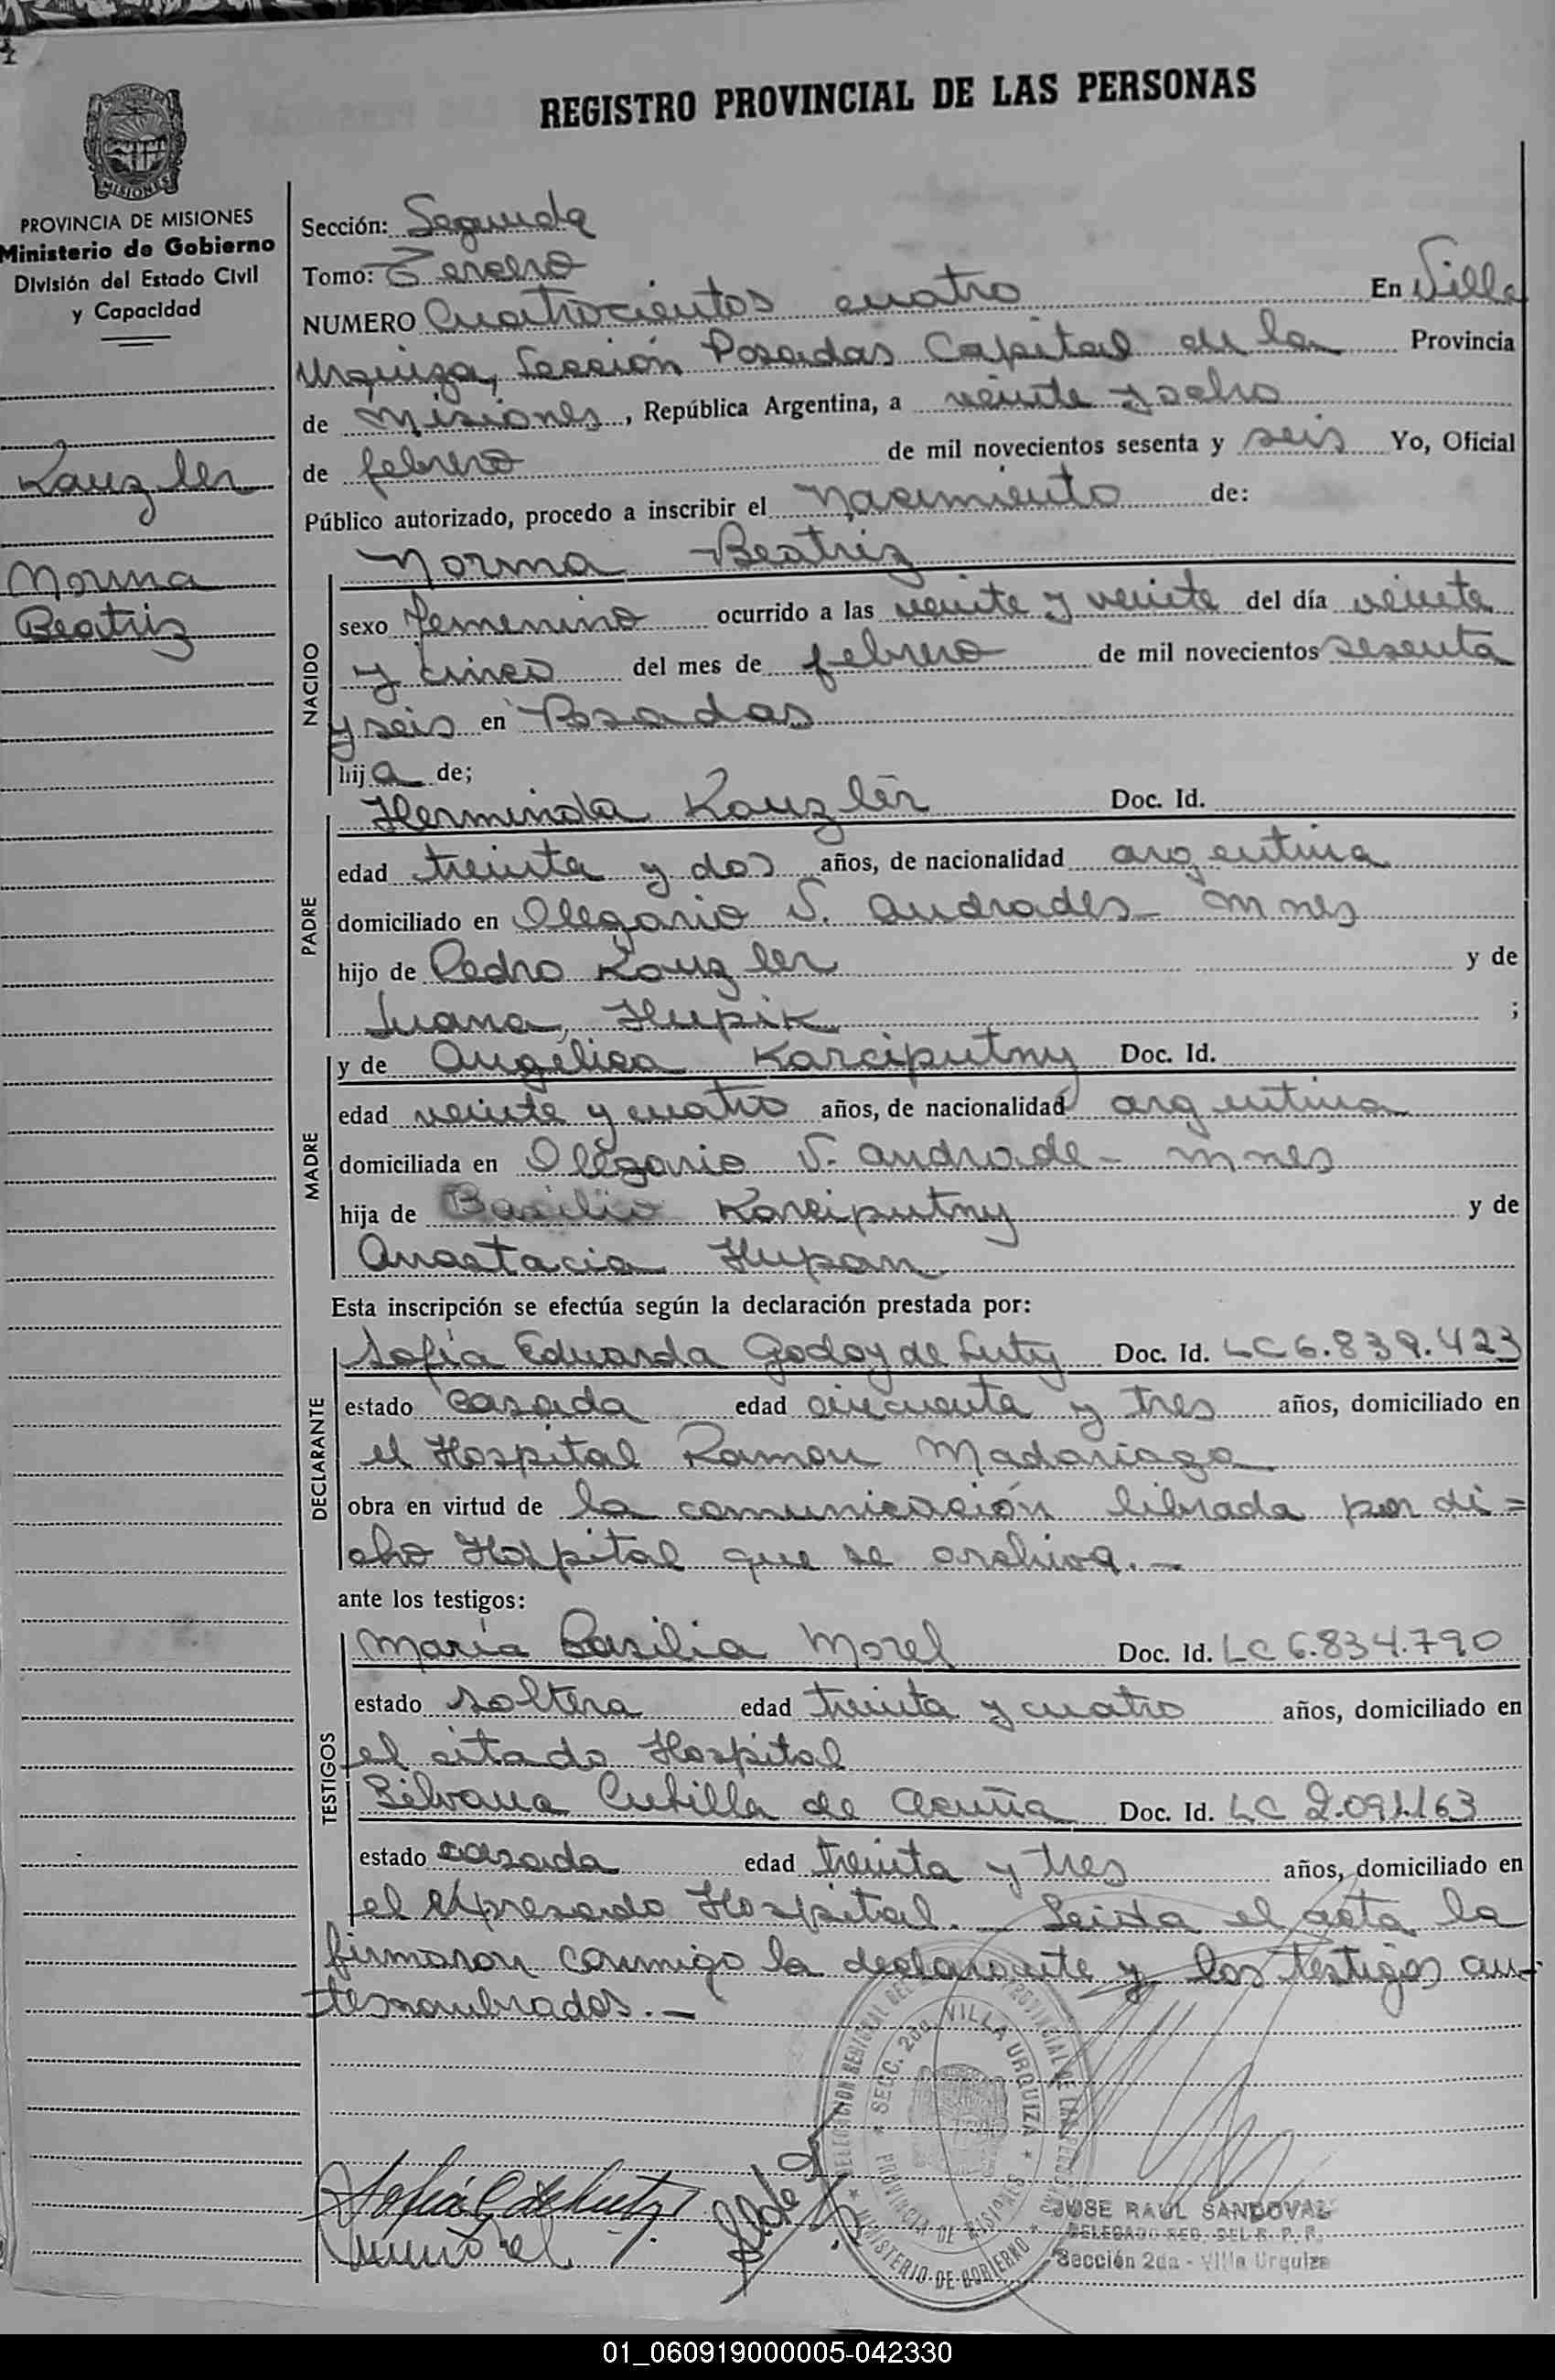 REGISTRO PROVINCIAL DE LAS PERSONAS
MISIONES
PROVINCIA DE MISIONES
Ministerio de Gobierno
División del Estado Civil
y Capacidad
Kauzler
Norma
Beatriz
Sección: Segunda
Tomo: Tercero
NUMERO Cuatrocientos cuatro En Villa
Urquiza, Sección Posadas Capital de la Provincia
de Misiones, República Argentina, a veinte y ocho
de febrero de mil novecientos sesenta y seis Yo, Oficial
Público autorizado, procedo a inscribir el nacimiento de:
Norma Beatriz
NACIDO
sexo femenino ocurrido a las veinte y veinte del día veinte
y cinco del mes de febrero de mil novecientos sesenta
y seis en Posadas
hija de;
PADRE
Herminda Kauzler Doc. Id.
edad treinta y dos años, de nacionalidad argentina
domiciliado en Olegario V. Andrades - Mnes
hijo de Pedro Kauzler y de
Juana, Hupik ;
MADRE
y de Angélica Karciputny Doc. Id.
edad veinte y cuatro años, de nacionalidad argentina
domiciliada en Olegario V. Andrade - Mnes
hija de Basilio Karciputny y de
Anastacia Hupan
Esta inscripción se efectúa según la declaración prestada por:
DECLARANTE
Sofía Eduarda Godoy de Luty Doc. Id. LC 6.839.423
estado casada edad cincuenta y tres años, domiciliado en
el Hospital Ramon Madariaga
obra en virtud de la comunicación librada por di=
cho Hospital que se archiva.-
ante los testigos:
TESTIGOS
María Basilia Morel Doc. Id. LC 6.834.790
estado soltera edad treinta y cuatro años, domiciliado en
el citado Hospital
Silvana Cutilla de Acuña Doc. Id. LC 2.091.163
estado casada edad treinta y tres años, domiciliado en
el expresado Hospital. - Leida el acta la
firmaron conmigo la declarante y los testigos an-
tesnombrados.-
SECC. 2da. VILLA URQUIZA
PROVINCIA DE MISIONES
MINISTERIO DE GOBIERNO
JOSE RAUL SANDOVAL
DELEGADO REG. DEL R. P. P.
Sección 2da - Villa Urquiza
01_060919000005-042330